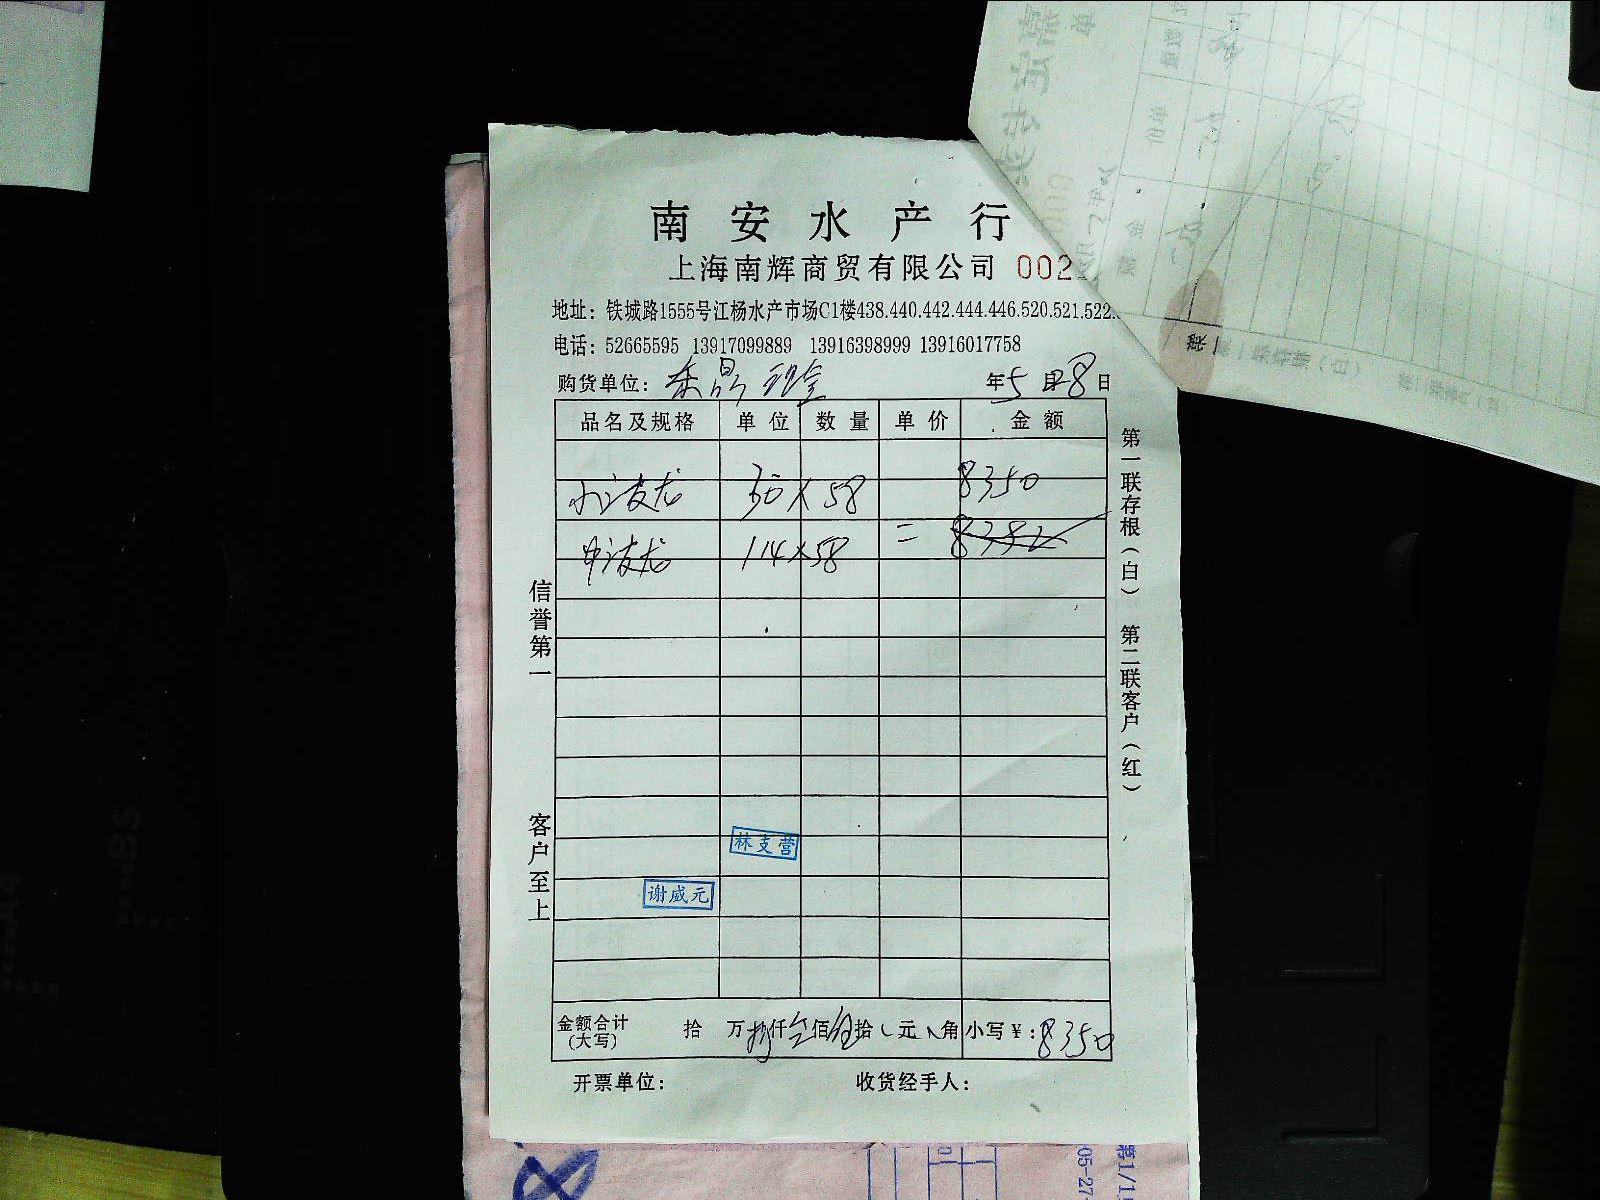 南安水产行
上海南辉商贸有限公司 002
地址：铁城路1555号江杨水产市场C1楼438.440.442.444.446.520.521.522.
电话：52665595 13917099889 13916398999 13916017758
购货单位： 年5月28日
品名及规格 单位 数量 单价 金额
小波龙 30 × 58 8350
中波龙 114×58 = 8352
信誉第一
客户至上
第一联存根（白） 第二联客户（红）
林支营
谢威元
金额合计（大写） 拾 万捌仟叁佰伍拾 元 角 小写￥：8350
开票单位： 收货经手人：
B5
A4
第1/1
05-27